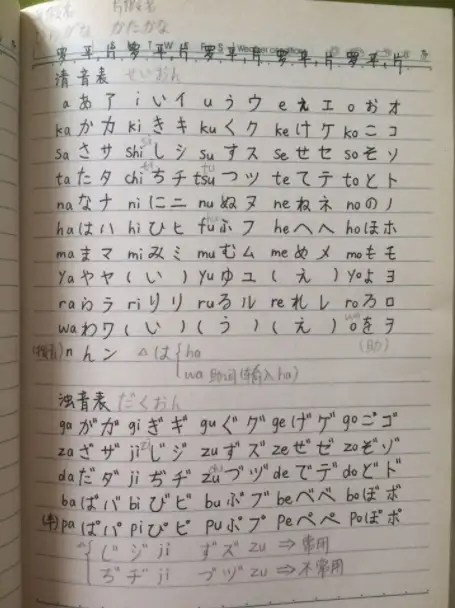 平假名 片假名
ひらがな かたかな
罗.平.片 罗.平.片 罗.平.片 罗.平.片 罗.平.片.
清音表 せいおん
a あ ア i い イ u う ウ e え エ o お オ
ka か カ ki き キ ku く ク ke け ケ ko こ コ
sa さ サ shi si し シ su す ス se せ セ so そ ソ
ta た タ chi ti ち チ tsu tu つ ツ te て テ to と ト
na な ナ ni に ニ nu ぬ ヌ ne ね ネ no の ノ
ha は ハ hi ひ ヒ fu hu ふ フ he へ ヘ ho ほ ホ
ma ま マ mi み ミ mu む ム me め メ mo も モ
ya や ヤ ( い ) yu ゆ ユ ( え ) yo よ ヨ
ra ら ラ ri り リ ru る ル re れ レ ro ろ ロ
wa わ ワ ( い ) ( う ) ( え ) o wo を ヲ
(拨音) n ん ン △ は { ha (助)
wa 助词(输入ha)
浊音表 だくおん
ga が ガ gi ぎ ギ gu ぐ グ ge げ ゲ go ご ゴ
za ざ ザ ji zi じ ジ zu ず ズ ze ぜ ゼ zo ぞ ゾ
da だ ダ ji ぢ ヂ zu du づ ヅ de で デ do ど ド
ba ば バ bi び ビ bu ぶ ブ be べ ベ bo ぼ ボ
(半) pa ぱ パ pi ぴ ピ pu ぷ プ pe ぺ ペ po ぽ ポ
△ { じ ジ ji ず ズ zu ⇒ 常用
ぢ ヂ ji づ ヅ zu ⇒ 不常用